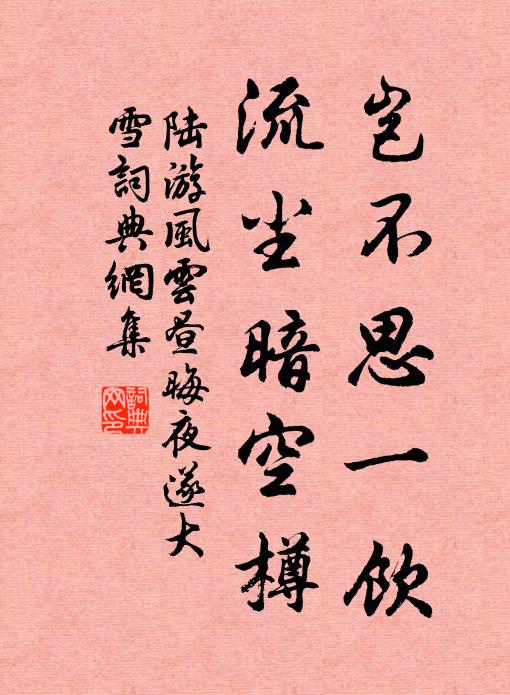 岂不思一饮
流尘暗空樽
陆游風雲昼晦夜遂大
雪詞典網集
詞典
网印